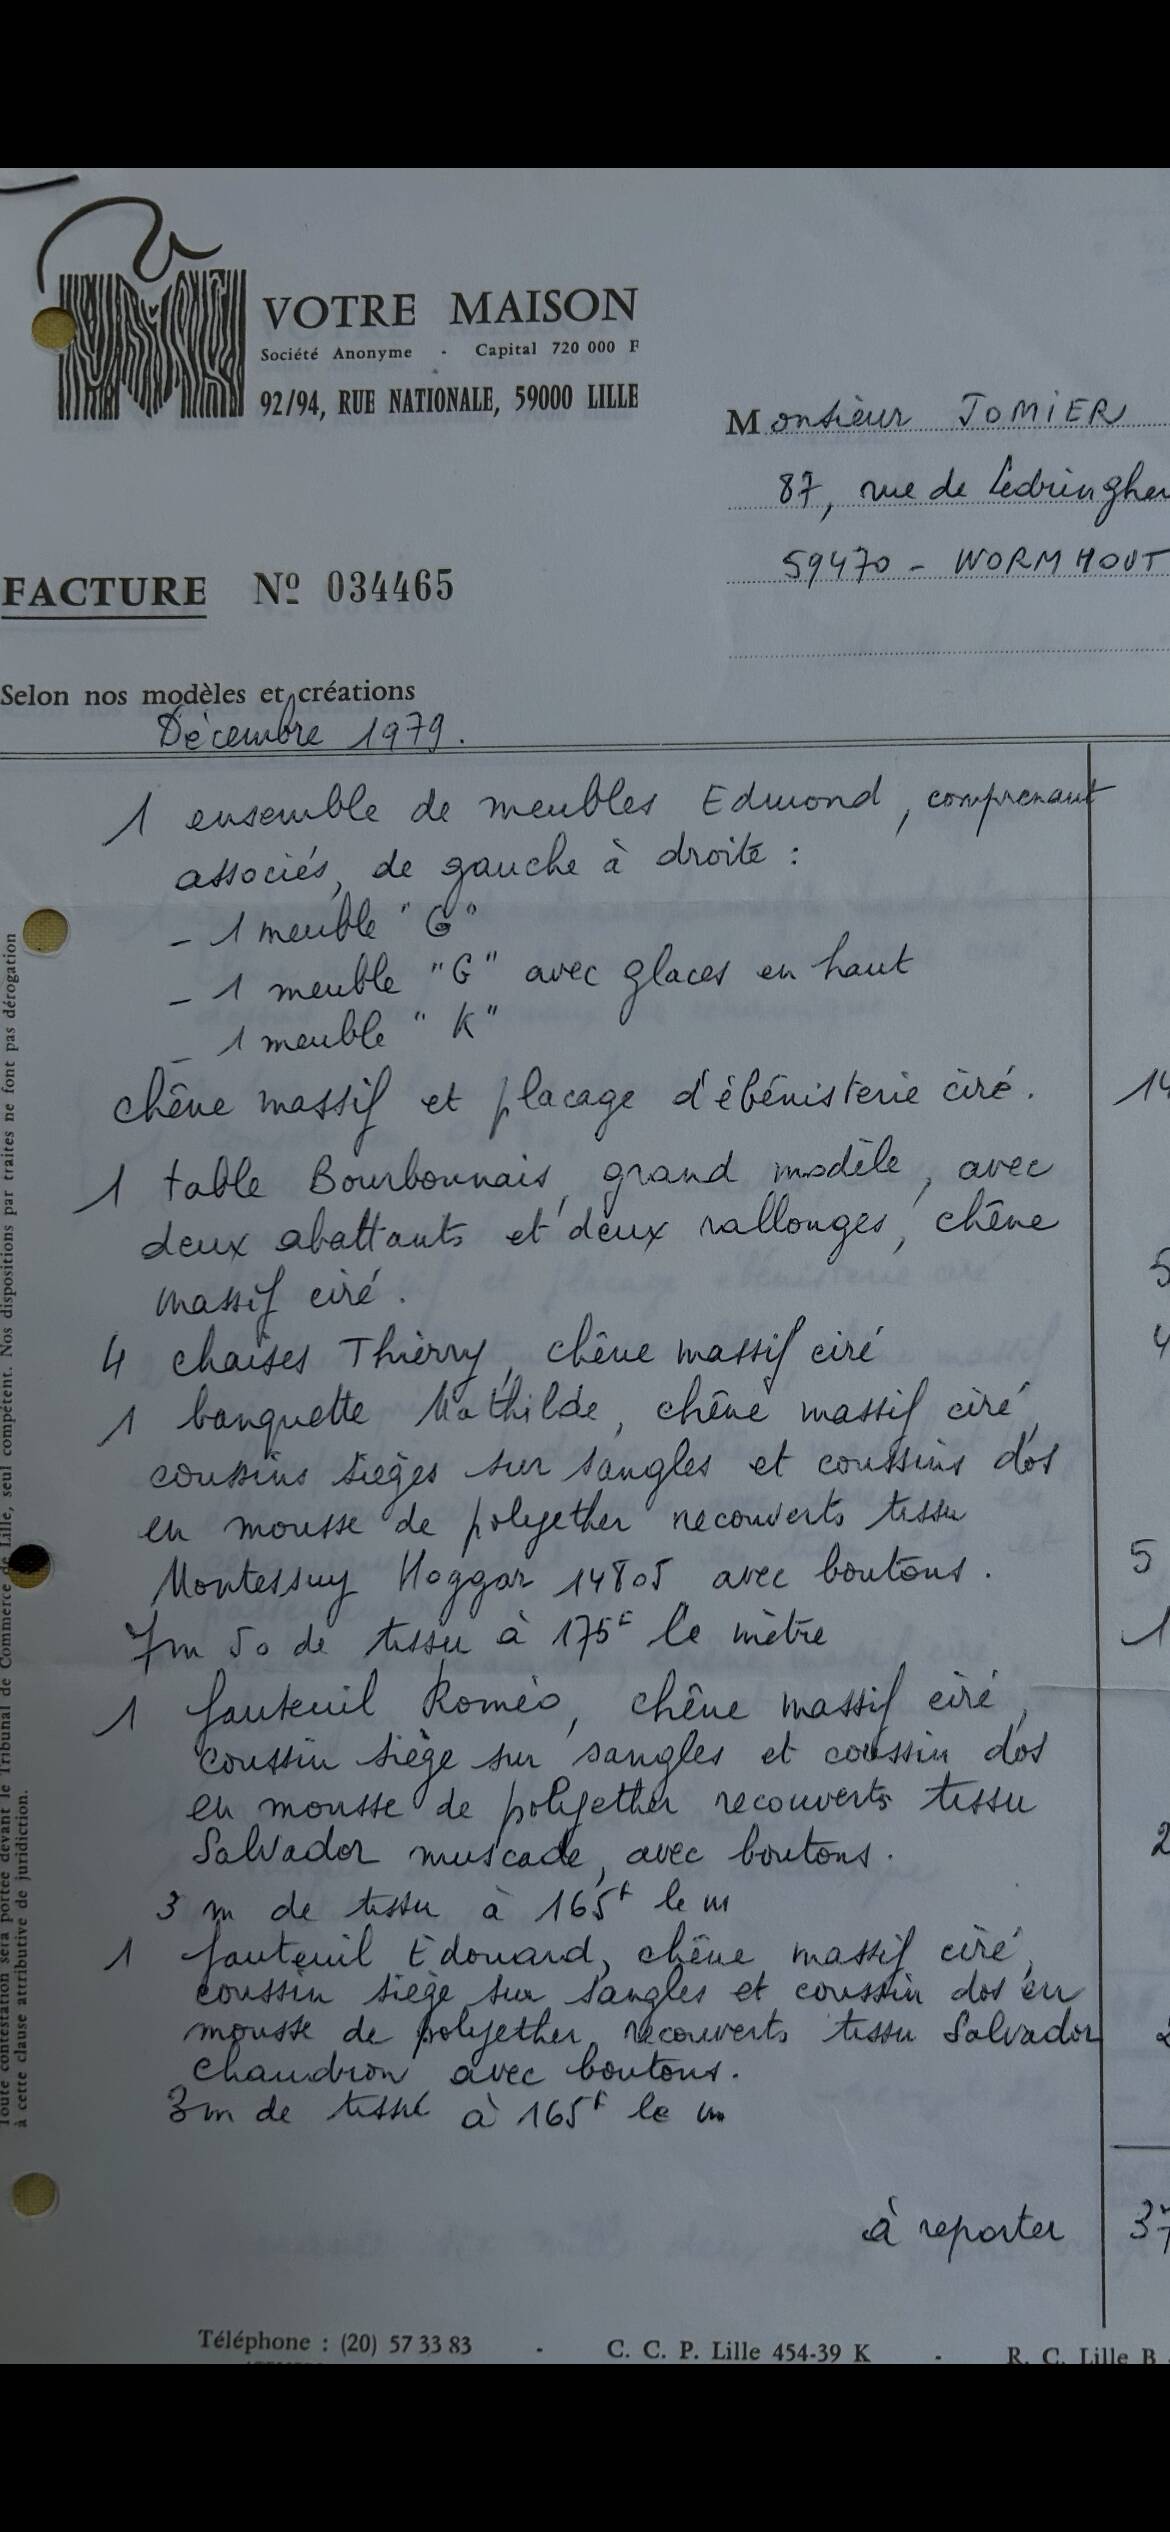 VOTRE MAISON
Société Anonyme - Capital 720 000 F
92/94, RUE NATIONALE, 59000 LILLE
Monsieur JOMIER
87, rue de Ledringhe
59470 - WORMHOUT
FACTURE Nº 034465
Selon nos modèles et créations
Décembre 1979.
1 ensemble de meubles Edmond, comprenant
associés, de gauche à droite :
- 1 meuble "G"
- 1 meuble "G" avec glaces en haut
- 1 meuble "K"
chêne massif et placage d'ébénisterie ciré. 14
1 table Bourbonnais, grand modèle, avec
deux abattants et deux rallonges, chêne
massif ciré. 5
4 chaises Thierry, chêne massif ciré 4
1 banquette Mathilde, chêne massif ciré,
coussins sièges sur sangles et coussins dos
en mousse de polyether recouverts tissu
Montessuy Hoggar 14805 avec boutons. 5
7m 50 de tissu à 175F le mètre 1
1 fauteuil Roméo, chêne massif ciré,
coussin siège sur sangles et coussin dos
en mousse de polyether recouverts tissu
Salvador muscade, avec boutons. 2
3 m de tissu à 165F le m
1 fauteuil Edouard, chêne massif ciré,
coussin siège sur sangles et coussin dos en
mousse de polyether, recouverts tissu Salvador 2
chaudron avec boutons.
3m de tissu à 165F le m
à reporter 37
Toute contestation sera portée devant le Tribunal de Commerce de Lille, seul compétent. Nos dispositions par traites ne font pas dérogation
à cette clause attributive de juridiction.
Téléphone : (20) 57 33 83 - C. C. P. Lille 454-39 K - R. C. Lille B